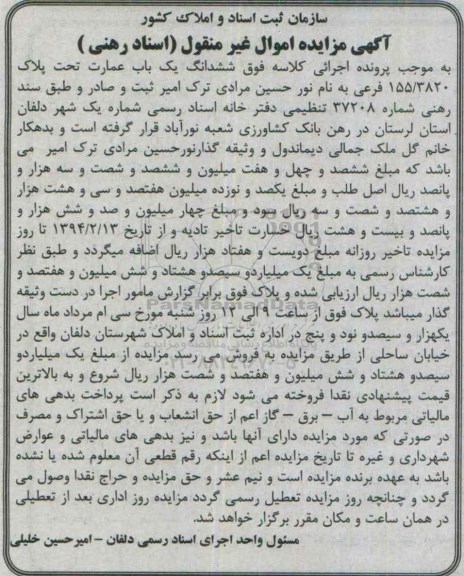 سازمان ثبت اسناد و املاک کشور
آگهی مزایده اموال غیر منقول (اسناد رهنی )
به موجب پرونده اجرائی کلاسه فوق ششدانگ یک باب عمارت تحت پلاک
۱۵۵/۳۸۲۰ فرعی به نام نور حسین مرادی ترک امیر ثبت و صادر و طبق سند
رهنی شماره ۳۷۲۰۸ تنظیمی دفتر خانه اسناد رسمی شماره یک شهر دلفان
استان لرستان در رهن بانک کشاورزی شعبه نورآباد قرار گرفته است و بدهکار
خانم گل ملک جمالی دیماندول و وثیقه گذارنورحسین مرادی ترک امیر می
باشد که مبلغ ششصد و چهل و هفت میلیون و ششصد و شصت و سه هزار و
پانصد ریال اصل طلب و مبلغ یکصد و نوزده میلیون هفتصد و سی و هشت هزار
و هشتصد و شصت و سه ریال سود و مبلغ چهار میلیون و صد و شش هزار و
پانصد و بیست و هشت ریال خسارت تاخیر تادیه و از تاریخ ۱۳۹۴/۲/۱۳ تا روز
مزایده تاخیر روزانه مبلغ دویست و هفتاد هزار ریال اضافه میگردد و طبق نظر
کارشناس رسمی به مبلغ یک میلیاردو سیصدو هشتاد و شش میلیون و هفتصد و
شصت هزار ریال ارزیابی شده و پلاک فوق برابر گزارش مامور اجرا در دست وثیقه
گذار میباشد پلاک فوق از ساعت ۹ الی ۱۲ روز شنبه مورخ سی ام مرداد ماه سال
یکهزار و سیصدو نود و پنج در اداره ثبت اسناد و املاک شهرستان دلفان واقع در
خیابان ساحلی از طریق مزایده به فروش می رسد مزایده از مبلغ یک میلیاردو
سیصدو هشتاد و شش میلیون و هفتصد و شصت هزار ریال شروع و به بالاترین
قیمت پیشنهادی نقدا فروخته می شود لازم به ذکر است پرداخت بدهی های
مالیاتی مربوط به آب – برق – گاز اعم از حق انشعاب و یا حق اشتراک و مصرف
در صورتی که مورد مزایده دارای آنها باشد و نیز بدهی های مالیاتی و عوارض
شهرداری و غیره تا تاریخ مزایده اعم از اینکه رقم قطعی آن معلوم شده یا نشده
باشد به عهده برنده مزایده است و نیم عشر و حق مزایده و حراج نقدا وصول می
گردد و چنانچه روز مزایده تعطیل رسمی گردد مزایده روز اداری بعد از تعطیلی
در همان ساعت و مکان مقرر برگزار خواهد شد.
مسئول واحد اجرای اسناد رسمی دلفان – امیرحسین خلیلی